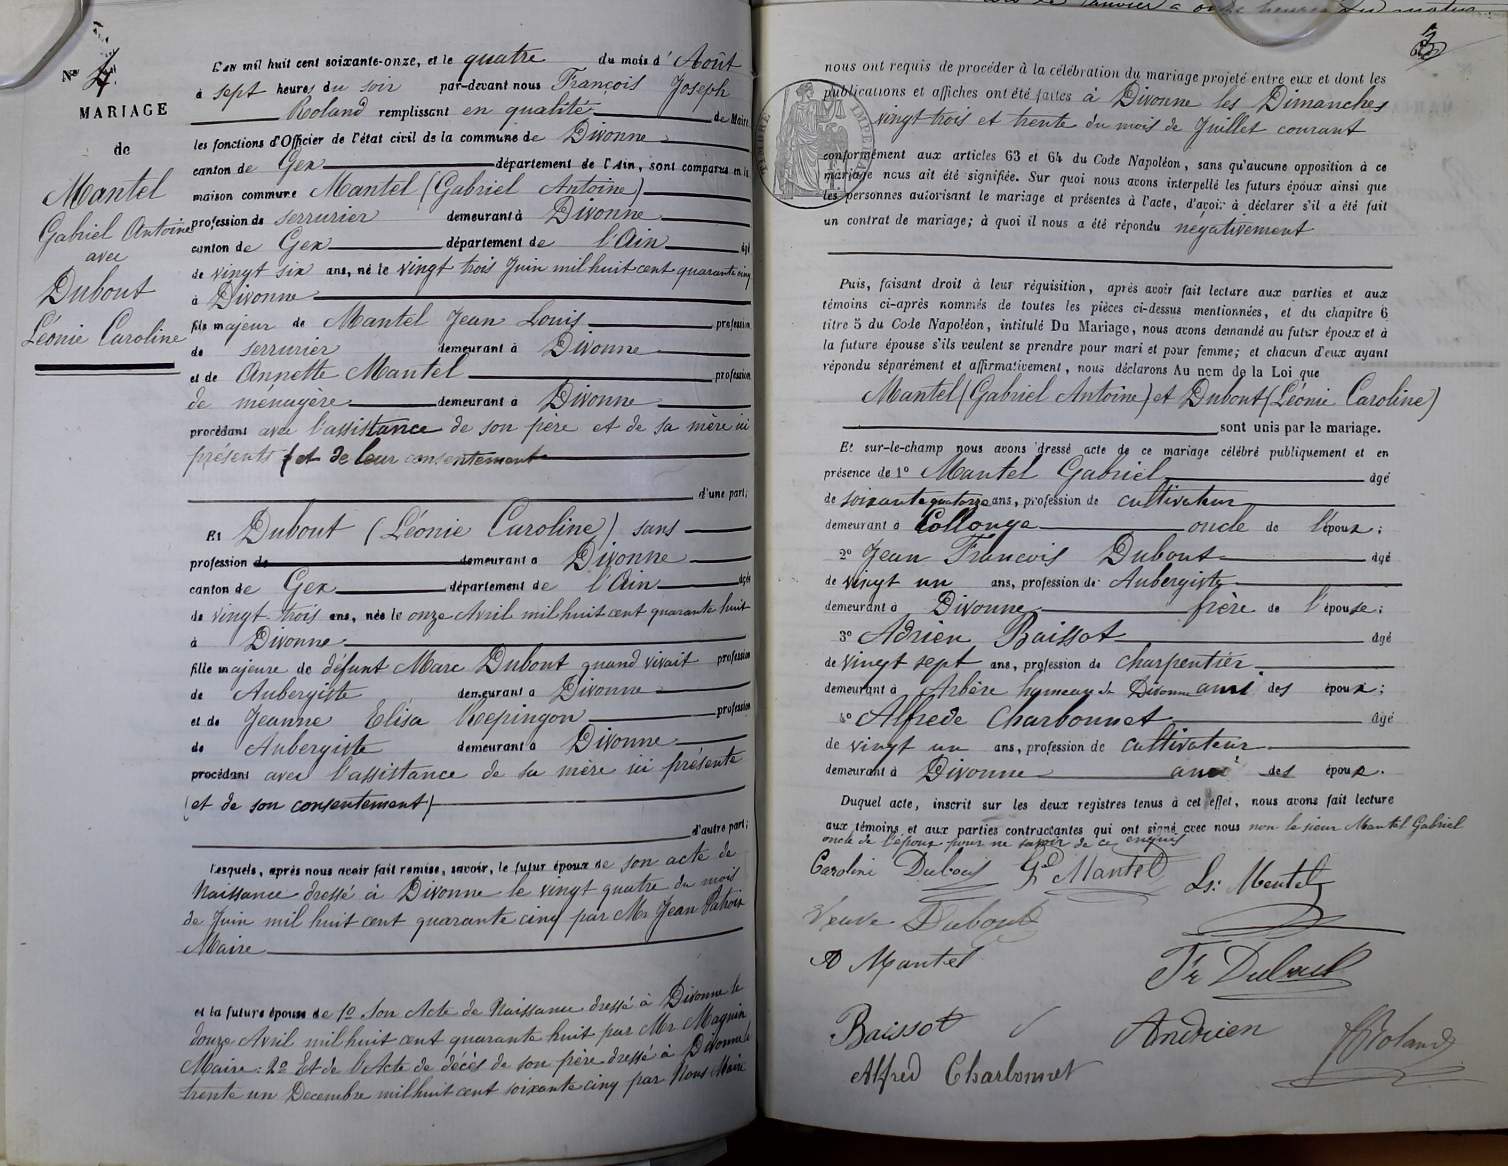 Nº 4.
MARIAGE
de
Mantel
Gabriel Antoine
avec
Dubout
Léonie Caroline
L'an mil huit cent soixante-onze, et le quatre du mois d'Août
à sept heures du soir par-devant nous François Joseph
Roland remplissant en qualité de Maire
les fonctions d'Officier de l'état civil de la commune de Divonne
canton de Gex département de l'Ain, sont comparus en la
maison commune Mantel (Gabriel Antoine)
profession de serrurier demeurant à Divonne
canton de Gex département de l'Ain âgé
de vingt six ans, né le vingt trois Juin mil huit cent quarante cinq
à Divonne
fils majeur de Mantel Jean Louis profession
de serrurier demeurant à Divonne
et de Annette Mantel profession
de ménagère demeurant à Divonne
procédant avec l'assistance de son père et de sa mère ici
présents (et de leur consentement
d'une part;
Et Dubout (Léonie Caroline) sans
profession de demeurant à Divonne
canton de Gex département de l'Ain âgée
de vingt trois ans, née le onze Avril mil huit cent quarante huit
à Divonne
fille majeure de défunt Marc Dubout quand vivait profession
de Aubergiste demeurant à Divonne
et de Jeanne Elisa Repingon profession
de Aubergiste demeurant à Divonne
procédant avec l'assistance de sa mère ici présente
(et de son consentement)
d'autre part;
Lesquels, après nous avoir fait remise, savoir, le futur époux de son acte de
Naissance dressé à Divonne le vingt quatre du mois
de Juin mil huit cent quarante cinq par Mr Jean
Maire
et la future épouse de 1º Son Acte de Naissance dressé à Divonne le
douze Avril mil huit cent quarante huit par Mr Maquin
Maire: 2º Et de l'Acte de décès de son père dressé à Divonne le
trente un Decembre mil huit cent soixante cinq par Nous Maire
janvier à onze heures du matin
3
nous ont requis de procéder à la célébration du mariage projeté entre eux et dont les
publications et affiches ont été faites à Divonne les Dimanches
vingt trois et trente du mois de Juillet courant
TIMBRE IMPERIAL
conformément aux articles 63 et 64 du Code Napoléon, sans qu'aucune opposition à ce
mariage nous ait été signifiée. Sur quoi nous avons interpellé les futurs époux ainsi que
les personnes autorisant le mariage et présentes à l'acte, d'avoir à déclarer s'il a été fait
un contrat de mariage; à quoi il nous a été répondu négativement
Puis, faisant droit à leur réquisition, après avoir fait lecture aux parties et aux
témoins ci-après nommés de toutes les pièces ci-dessus mentionnées, et du chapitre 6
titre 5 du Code Napoléon, intitulé Du Mariage, nous avons demandé au futur époux et à
la future épouse s'ils veulent se prendre pour mari et pour femme; et chacun d'eux ayant
répondu séparément et affirmativement, nous déclarons Au nom de la Loi que
Mantel (Gabriel Antoine) et Dubout (Léonie Caroline)
sont unis par le mariage.
Et sur-le-champ nous avons dressé acte de ce mariage célébré publiquement et en
présence de 1º Mantel Gabriel âgé
de soixante quatorze ans, profession de cultivateur
demeurant à Collonge oncle de l'époux;
2º Jean François Dubout âgé
de vingt un ans, profession de Aubergiste
demeurant à Divonne frère de l'épouse;
3º Adrien Baissot âgé
de vingt sept ans, profession de charpentier
demeurant à Arbère hameau de Divonne ami des époux;
4º Alfrede Charbonnet âgé
de vingt un ans, profession de cultivateur
demeurant à Divonne ami des époux.
Duquel acte, inscrit sur les deux registres tenus à cet effet, nous avons fait lecture
aux témoins et aux parties contractantes qui ont signé avec nous non le sieur Mantel Gabriel
oncle de l'époux pour ne savoir de ce enquis
Caroline Dubout Gel Mantel Ls: Mantel
Veuve Dubout
A Mantel Fr Dubout
Baissot Andrien Roland
Alfred Charbonnet